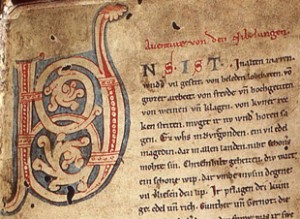 Auenture von den Nibelungen
VNS IST In alten mæren
wnders vil geseit. von heleden lobebæren. von
grozer arebeit. von frevde vñ hoch
von weinen vñ klagen. von kuner rek
ken striten. muget ir nv wnder horen sa
gen. Ez whs in Buregonden. ein vil edel
magedin. daz in allen landen. niht schon
mohte sin. Chriemhilt geheizen. div wart
ein schone wip. dar vmbe mvsin degene
vil verliesen den lip. Ir pflagen dri kuni
ge edel vñ rich. Gunther vñ Gernot